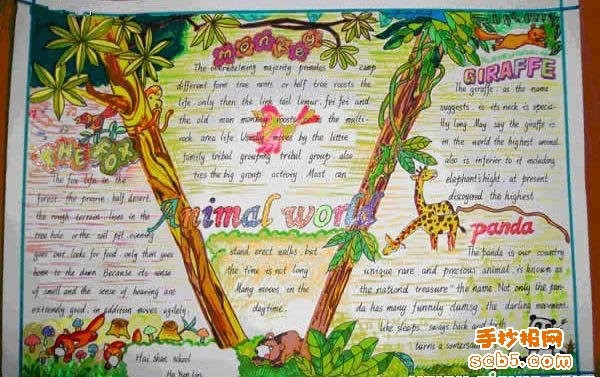 monkey
The overwhelming majority primates camp
different form tree nests or half tree roosts the
life only then the link tail lumur, fei fei and
the old man monkey roosts in the multi-
rock area life Usually moves by the little
family tribal grouping tribal group also
ties the big group activity Most can
stand erect walks, but
the time is not long
Many moves in the
daytime.
Animal world
THE FOX
The fox life in the
forest the prairie half desert
the rough terrain lives in the
tree hole or the soil pit evening
goes out looks for food only then goes
home to the dawn Because its sense
of smell and the sense of hearing are
extremely good, in addition moves agilely
Hai shan school
GIRAFFE
The giraffe as the name
suggests, is its neck is specia-
lly long May say the giraffe is
in the world the highest animal
also is inferior to it including
elephant's hight, at present
discovered the highest
panda
The panda is our country
unique rare and precious animal, is known as
the national treasure" the name. Not only the pan-
da has many funnily clumsy, the darling movement,
like sleeps, sways back and
turns a somersa
手抄报网
scb5.com